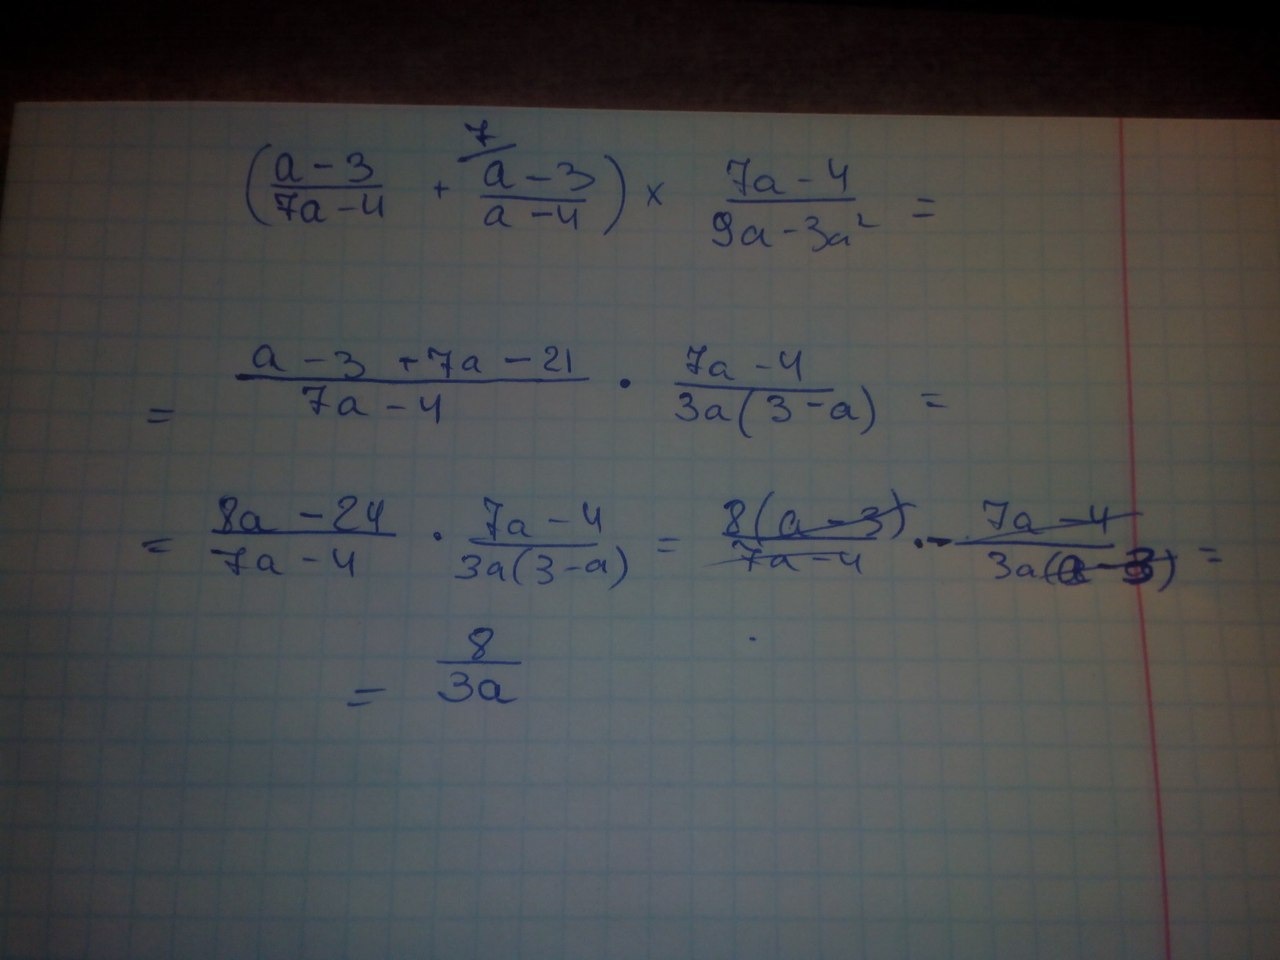 7
(a-3/7a-4 + a-3/a-4) × 7a-4/9a-3a² =
= a-3+7a-21/7a-4 · 7a-4/3a(3-a) =
= 8a-24/7a-4 · 7a-4/3a(3-a) = 8(a-3)/7a-4 · - 7a-4/3a(a-3) =
= 8/3a